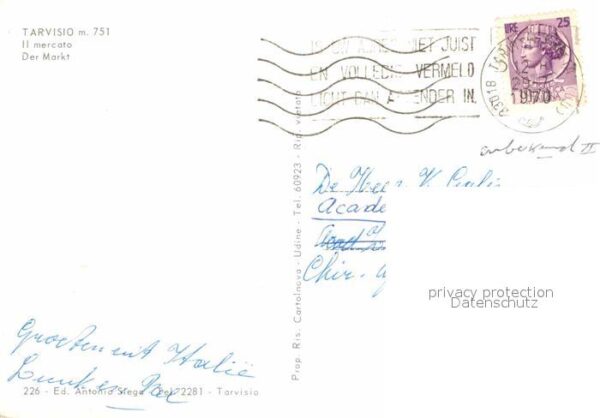 TARVISIO m. 751
Il mercato
Der Markt
IS UW ADRES NIET JUIST
EN VOLLEDIG VERMELD
LICHT DAN AFZENDER IN.
LIRE 25
33018
1970
onbekend II
De Heer V.
Acade
Chir.
privacy protection
Datenschutz
Groeten uit Italië
Prop. Ris. Cartolnova - Udine - Tel. 60923 - Rip. vietata
226 - Ed. Antonio Siega - Tel. 2281 - Tarvisio